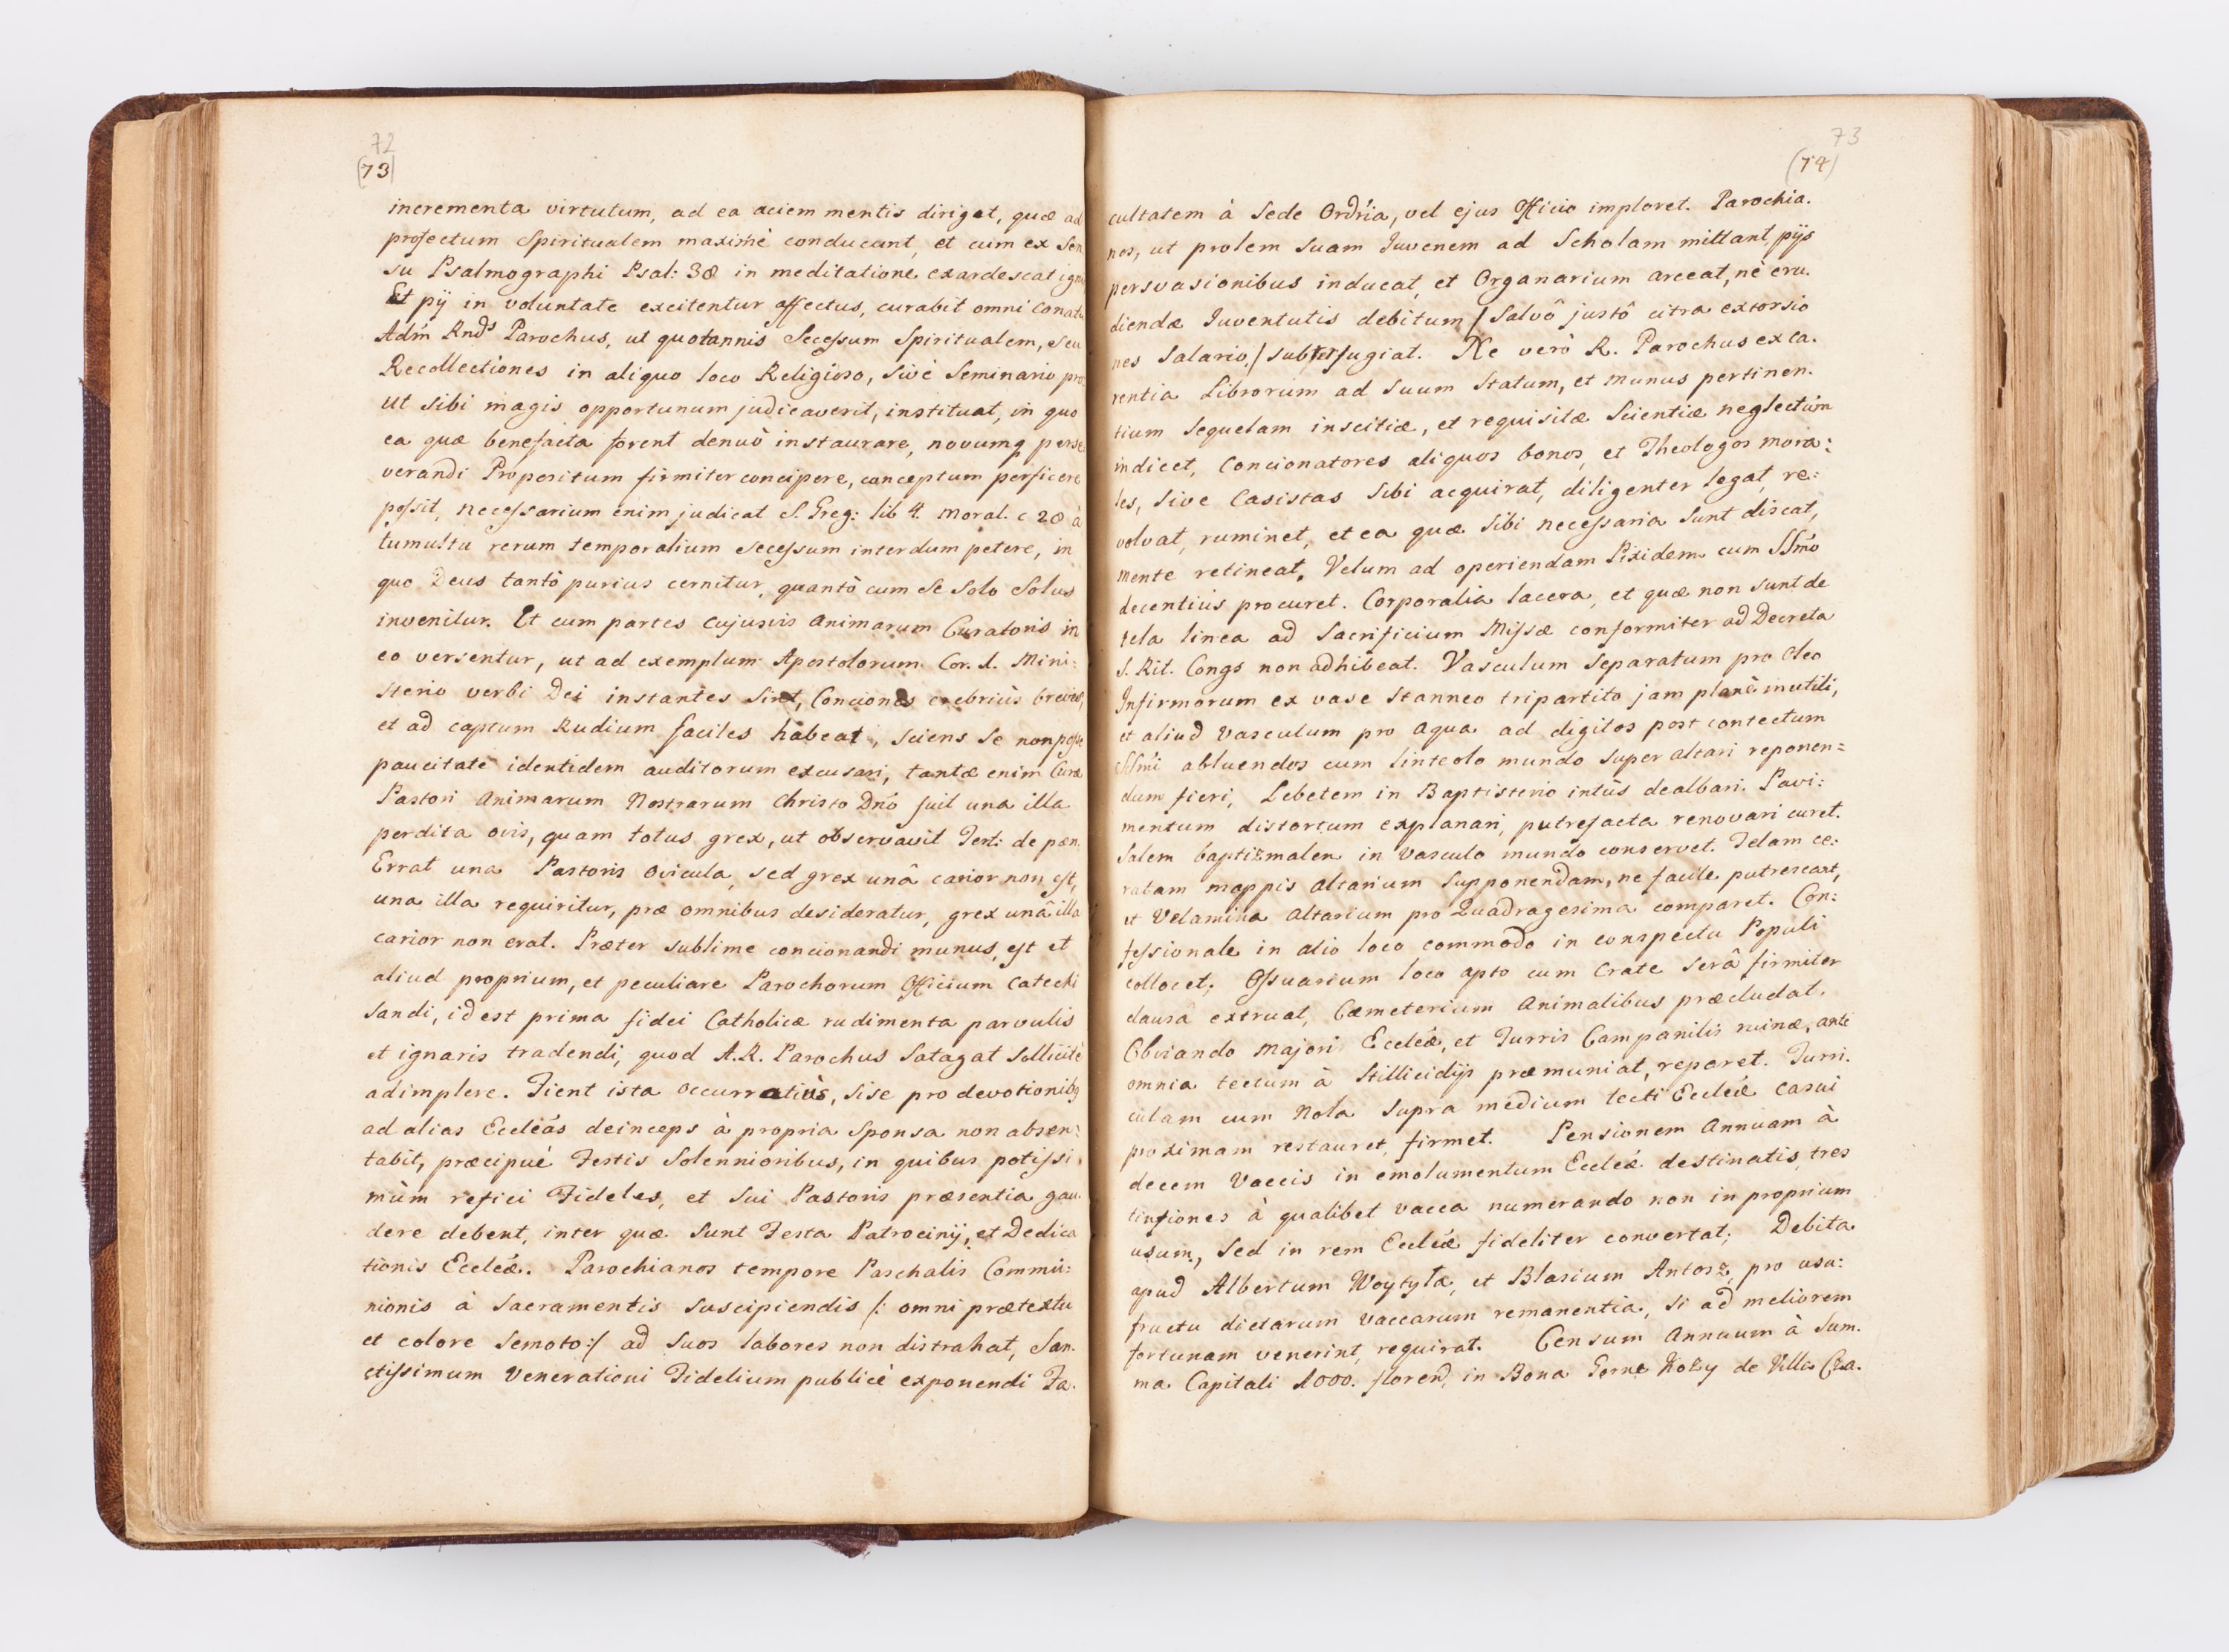 72
(73)
incrementa virtutum, ad ea aciem mentis dirigat, quæ ad
profectum Spiritualem maximè conducunt, et cum ex Sen
su Psalmographi Psal: 38 in meditatione exardescat ignis
Et pÿ in voluntate excitentur affectus, curabit omni conatu
Adm̃ Rnd͠s Parochus, ut quotannis Secessum Spiritualem, seu
Recollectiones in aliquo loco Religioso, sivè Seminario pro
ut sibi magis opportunum judicaverit, instituat, in quo
ea quæ benefacta forent denuò instaurare, novumq perse
verandi Propositum firmiter concipere, conceptum perficere
possit, necessarium enim judicat S. Greg: lib 4. Moral. c 28 à
tumultu rerum temporalium secessum interdum petere, in
quo Deus tantò purius cernitur, quantò cum Se Solo Solus
invenitur. Et cum partes cujusvis animarum Curatoris in
eo versentur, ut ad exemplum Apostolorum Cor. 1. Mini:
sterio verbi Dei instantes sint, Conciones crebriùs breves,
et ad captum Rudium faciles habeat, sciens se non posse
paucitate identidem auditorum excusari, tantæ enim Curæ
Pastori Animarum Nostrarum Christo Dño fuit una illa
perdita ovis, quam totus grex, ut observavit Tert: de pæn.
Errat una Pastoris ovicula, sed grex unâ carior non est,
una illa requiritur, præ omnibus desideratur, grex unâ illa
carior non erat. Præter sublime concionandi munus, est et
aliud proprium, et peculiare Parochorum Officium Catechi
sandi, id est prima fidei Catholicæ rudimenta parvulis
et ignaris tradendi, quod A.R. Parochus Satagat Sollicitè
adimplere. Fient ista occurratiùs, si se pro devotionibq
ad alias Eccleãs deinceps à propria Sponsa non absen:
tabit, præcipuè Festis Solennioribus, in quibus potissi
mùm refici Fideles, et Sui Pastoris præsentia gau.
dere debent, inter quæ Sunt Festa Patrocinÿ, et Dedica
tionis Eccleæ. Parochianos tempore Paschalis Commu:
nionis à Sacramentis Suscipiendis /: omni prætextu
et colore Semoto:/ ad Suos labores non distrahat, San.
ctissimum Venerationi Fidelium publicè exponendi Fa.
73
(74)
cultatem à Sede Ordr̃ia, vel ejus Officio imploret. Parochia.
nos, ut prolem Suam Juvenem ad Scholam mittant, pÿs
persvasionibus inducat, et Organarium arceat, nè eru.
diendæ Juventutis debitum / Salvô justô citra extorsio
nes Salario,/ subterfugiat. Ne verò R. Parochus ex ca.
rentia Librorum ad Suum Statum, et munus pertinen.
tium Sequelam inscitiæ, et requisitæ Scientiæ neglectum
indicet, Concionatores aliquos bonos, et Theologos mora:
les, Sive Casistas Sibi acquirat, diligenter legat, re:
volvat, ruminet, et ea quæ Sibi necessaria Sunt discat,
mente retineat. Velum ad operiendam Pixidem cum SSmo
decentius procuret. Corporalia lacera, et quæ non sunt de
tela linea ad Sacrificium Missæ conformiter ad Decreta
S. Rit. Congs non adhibeat. Vasculum Separatum pro Oleo
Infirmorum ex vase Stanneo tripartito jam planè inutili,
et aliud vasculum pro aqua ad digitos post contectum
SSmi abluendos cum linteolo mundo super altari reponen=
dum fieri, Lebetem in Baptisterio intùs dealbari. Pavi:
mentum distortum explanari, putrefacta renovari curet.
Salem baptizmalem in vasculo mundo conservet. Telam ce:
ratam mappis altarium supponendam, ne facile putrescant,
et Velamina altarium pro Quadragesima comparet. Con:
fessionale in alio loco commodo in conspectu Populi
collocet; Ossuarium loco apto cum Crate serâ firmiter
clausâ extruat, Cæmeterium animalibus præcludat.
Obviando majori Eccleæ, et Turris Campanilis ruinæ, ante
omnia tectum à Stillicidÿs præmuniat, reparet. Turri.
culam cum Nola supra medium tecti Eccleæ casui
proximam restauret, firmet. Pensionem annuam à
decem Vaccis in emolumentum Eccleæ destinatis, tres
tinfiones à qualibet vacca numerando non in proprium
usum, Sed in rem Eccleæ fideliter convertat; Debita
apud Albertum Woytyła, et Blasium Antosz, pro usu:
fructu dictarum vaccarum remanentia, si ad meliorem
fortunam venerint, requirat. Censum Annuum à Sum.
ma Capitali 1000. floren, in Bona de Villa Cza.